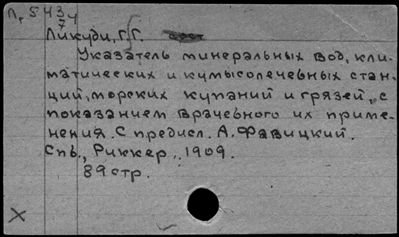 П, 5434
7
Ликуди, Г. Г.
Указатель минеральных вод, кли-
матических и кумысолечебных стан-
ций, морских купаний и грязей, с
показанием врачебного их приме-
нения. С предисл. А. Фавицкий.
Спб., Риккер, 1909.
89 стр.
X